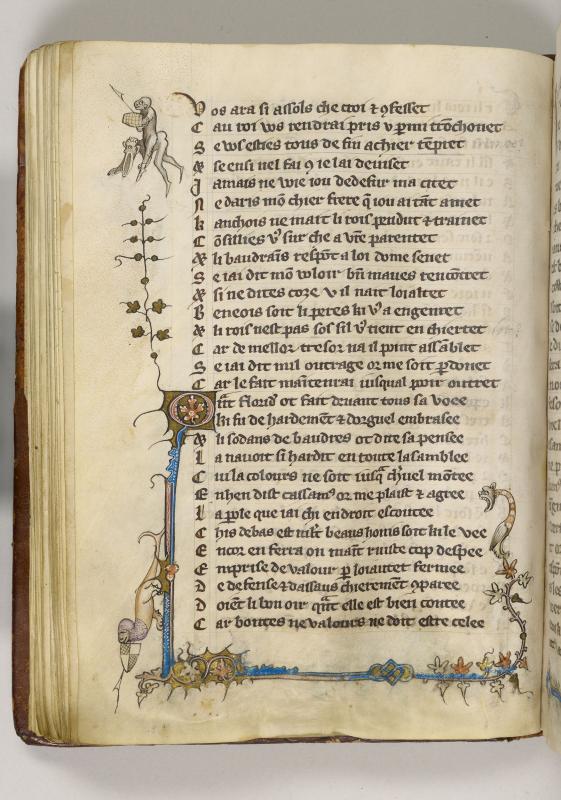 Vos ara si assols che croi ⁊ ꝯfesset
C au roi vvs rendrai pris v parmi
S e vvs esties tous de fin achier
⁊ se ensi nel fai ꝯ ie lai deuiset
J amais ne wie iou dedefur ma citet
N e daris mō chier frere q̄ iou ai tāt amet
k anchois ne mait li rois pendut ⁊ trainet
C sur che a parentet
⁊ li baudrains respōt a loi dome senet
S e iai dit mō voloir bn̄ maues rencōtret
⁊ si ne dites coze v il nait loialtet
B eneois soit li peres ki a engenret
⁊ li rois nest pas sos sil tient en chiertet
C ar de mellor tresor na il point assāblet
S e iai dit mil outrage or me soit ꝑdonet
C ar le fait maītenrai iusqual outret
Q ot fait deuant tous sa voee
ki fu de hardemēt ⁊ dorguel enbrasee
⁊ li sodans de baudres ot dite sa pensee
L a nauoit si hardit en toute la samblee
C ui la colours ne soit el mōtee
E nhen dist cassamꝰ or me plaist ⁊ agree
L a ꝑole que iai chi endroit escoutee
C his debas est beaus honis soit ki le vee
E ncor en ferra on maīt ruiste cop despee
E mprise de valour ꝑ loiautet fermee
D e defense ⁊ dassaus chierement ꝯparee
D oiēt li bon oir qāt elle est bien contee
C ar bontes ne valours ne doit estre celee